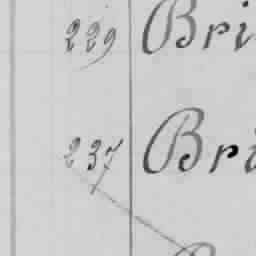 229 Bri
237 Bri